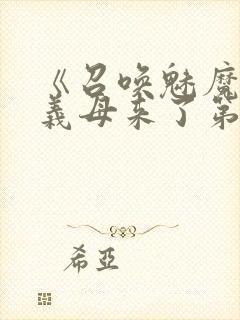 《召唤魅魔
義母来了第
希亞